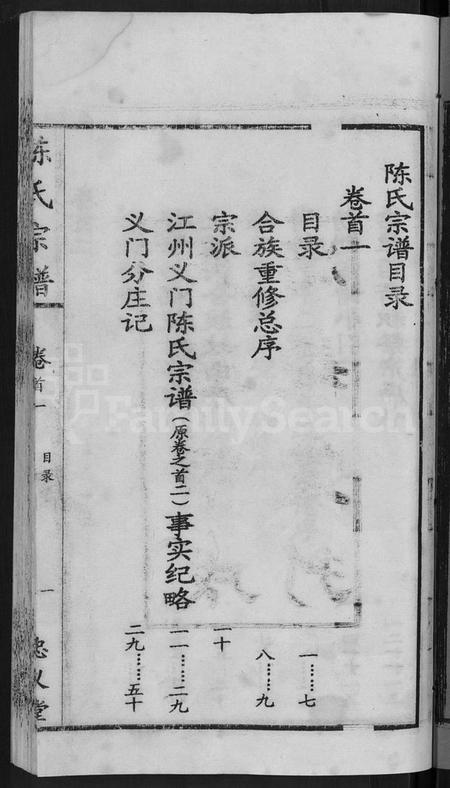 陈氏宗谱目录
卷首一
目录 一……七
合族重修总序 八……九
宗派 十
江州义门陈氏宗谱（原卷之首二）事实纪略 一一……二九
义门分庄记 二九……五十
陈氏宗谱
卷首一
目录
一
忠义堂
FamilySearch